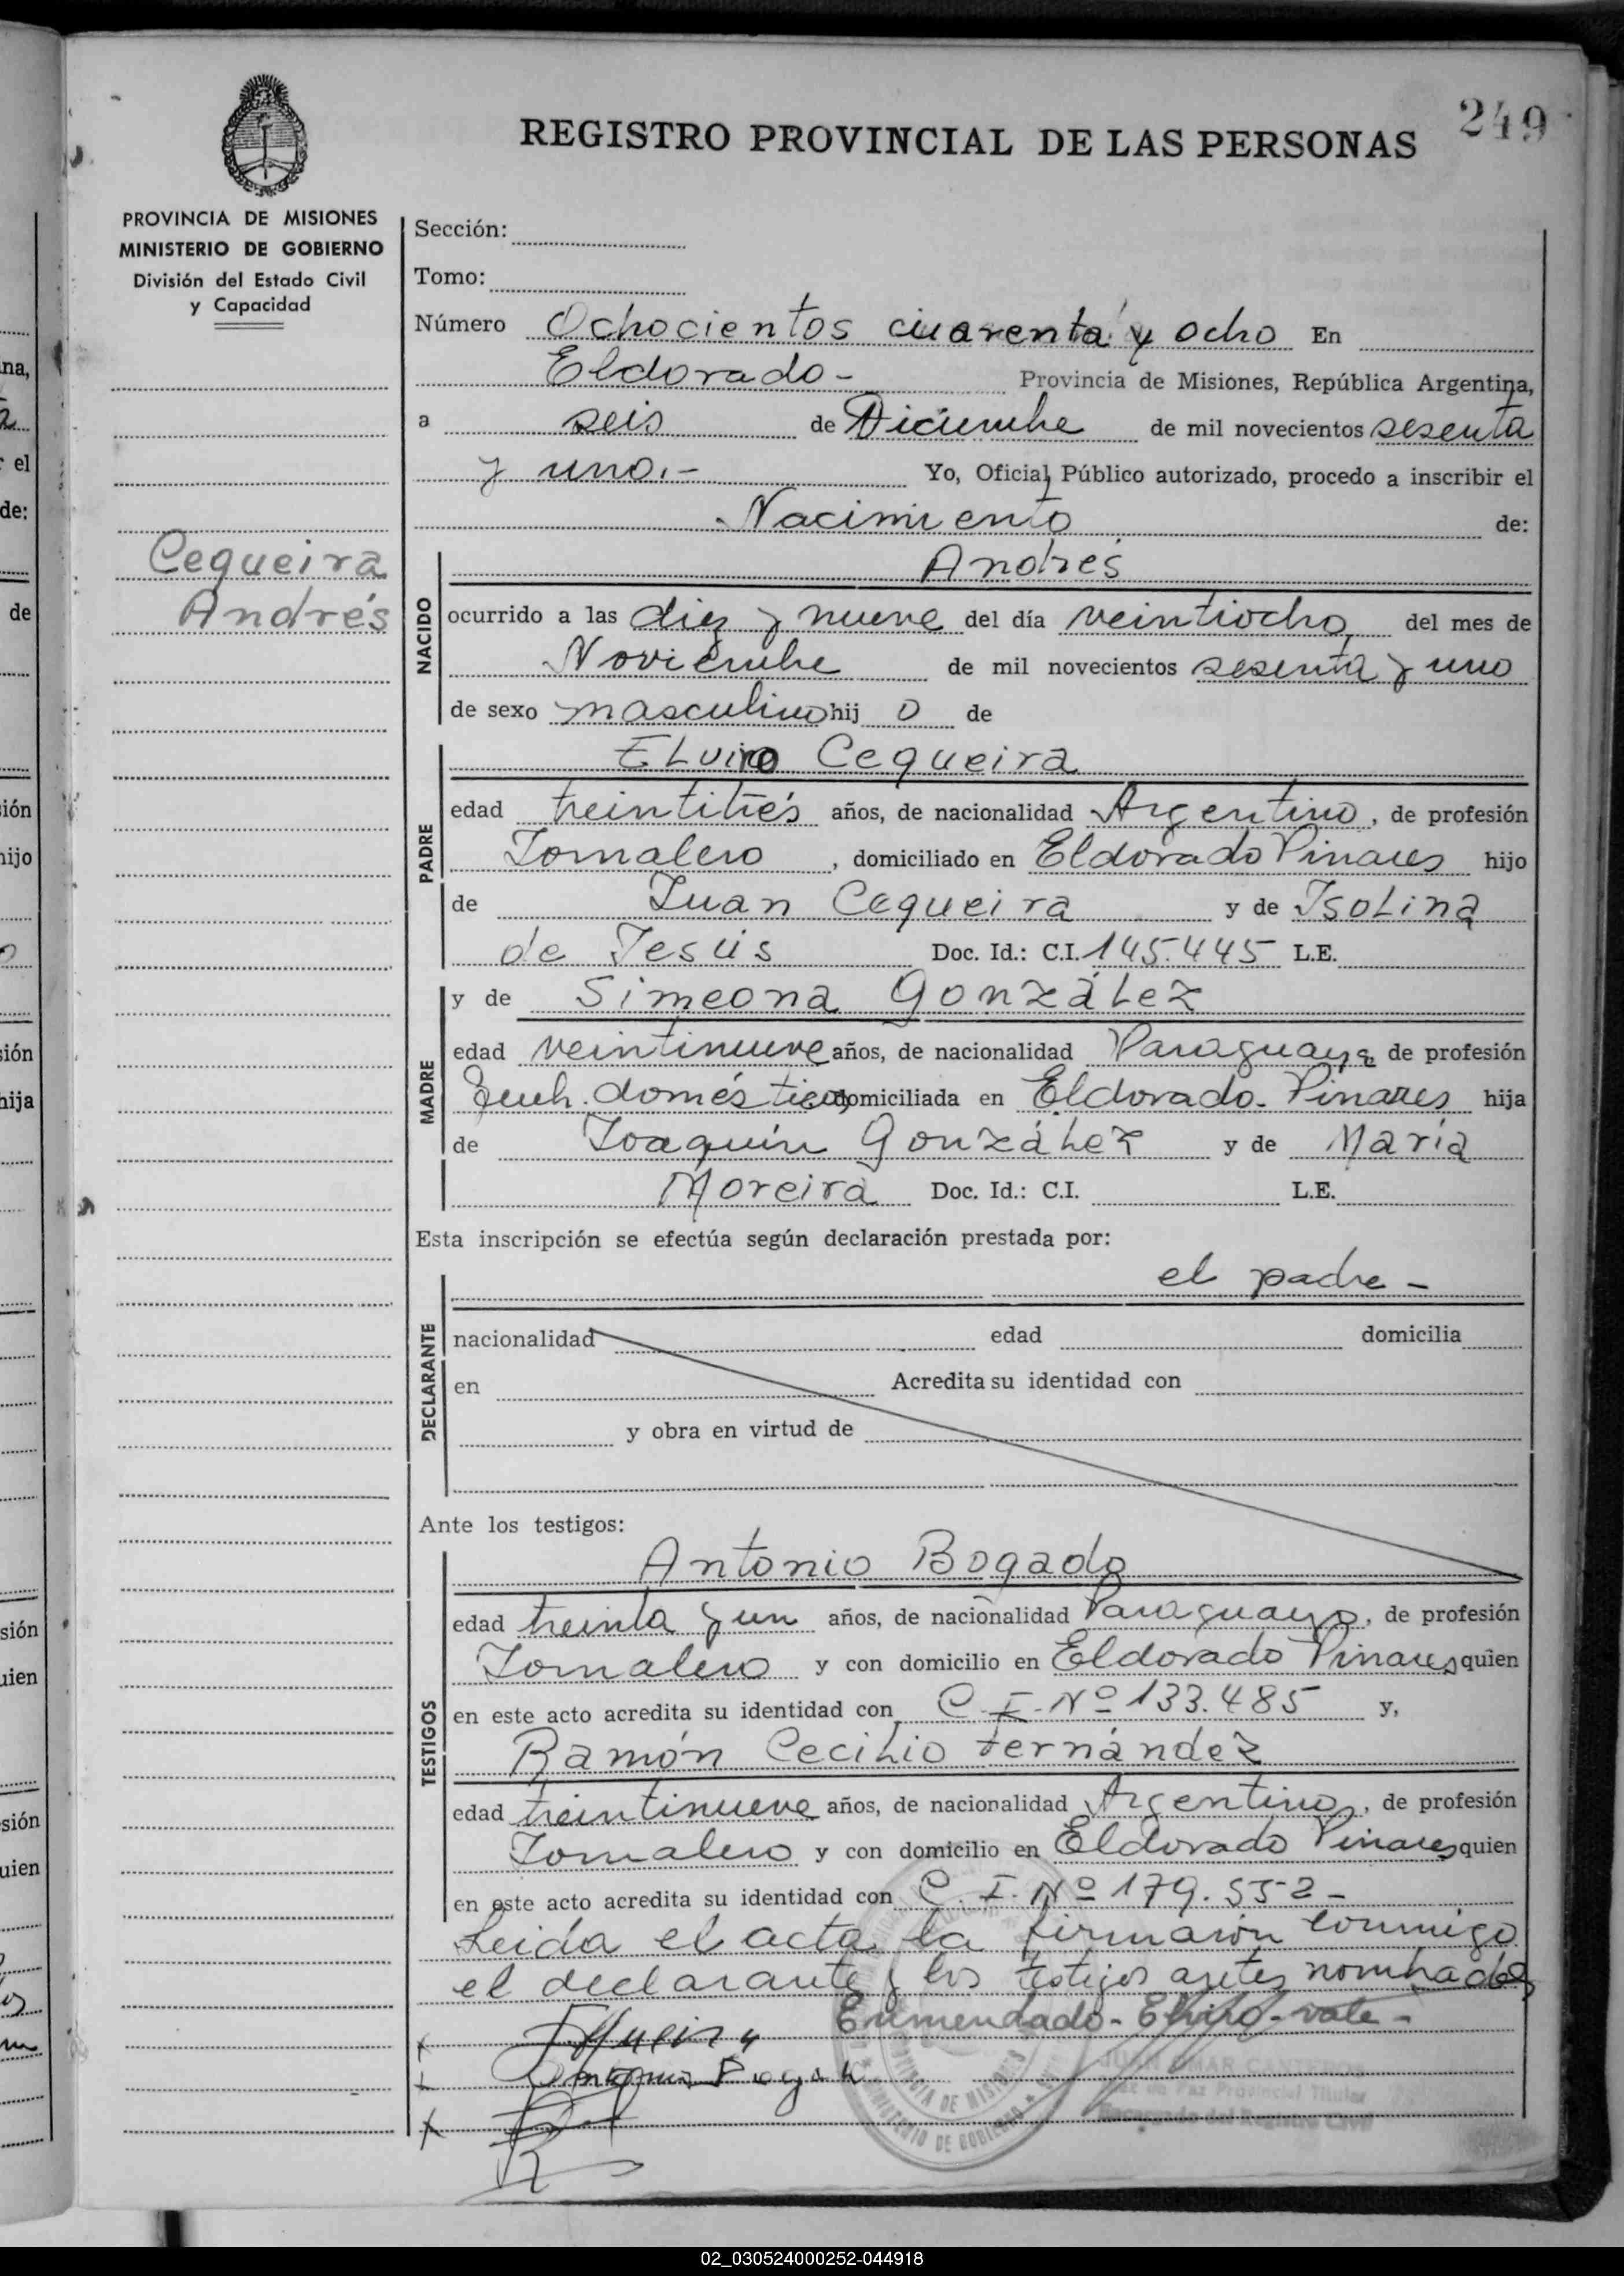 249
REGISTRO PROVINCIAL DE LAS PERSONAS
PROVINCIA DE MISIONES
MINISTERIO DE GOBIERNO
División del Estado Civil
y Capacidad
Cequeira
Andrés
Sección:
Tomo:
Número Ochocientos cuarenta y ocho En
Eldorado- Provincia de Misiones, República Argentina,
a seis de Diciembre de mil novecientos sesenta
y uno.- Yo, Oficial Público autorizado, procedo a inscribir el
Nacimiento de:
NACIDO
Andrés
ocurrido a las diez y nueve del día veintiocho del mes de
Noviembre de mil novecientos sesenta y uno
de sexo masculino hijo de
PADRE
Elviro Cequeira
edad treintitrés años, de nacionalidad Argentino, de profesión
Jornalero, domiciliado en Eldorado Pinares hijo
de Juan Cequeira y de Isolina
de Jesús Doc. Id.: C.I. 145.445 L.E.
MADRE
y de Simeona González
edad veintinueve años, de nacionalidad Paraguaya de profesión
domésticos domiciliada en Eldorado-Pinares hija
de Joaquín González y de María
Moreira Doc. Id.: C.I. L.E.
Esta inscripción se efectúa según declaración prestada por:
el padre -
DECLARANTE
nacionalidad edad domicilia
en Acredita su identidad con
y obra en virtud de
Ante los testigos:
TESTIGOS
Antonio Bogado
edad treinta y un años, de nacionalidad Paraguayo, de profesión
Jornalero y con domicilio en Eldorado Pinares quien
en este acto acredita su identidad con C.I. Nº 133.485 y,
Ramón Cecilio Fernández
edad treintinueve años, de nacionalidad Argentino, de profesión
Jornalero y con domicilio en Eldorado Pinares quien
en este acto acredita su identidad con C.I. Nº 179.552-
Leida el acta la firmaron conmigo
el declarante y los testigos antes nombrados
Enmendado-Elviro-vale-
JUAN OMAR CANTEROS
Juez de Paz Provincial Titular
Encargado del Registro Civil
PROVINCIA DE MISIONES
MINISTERIO DE GOBIERNO
02_030524000252-044918